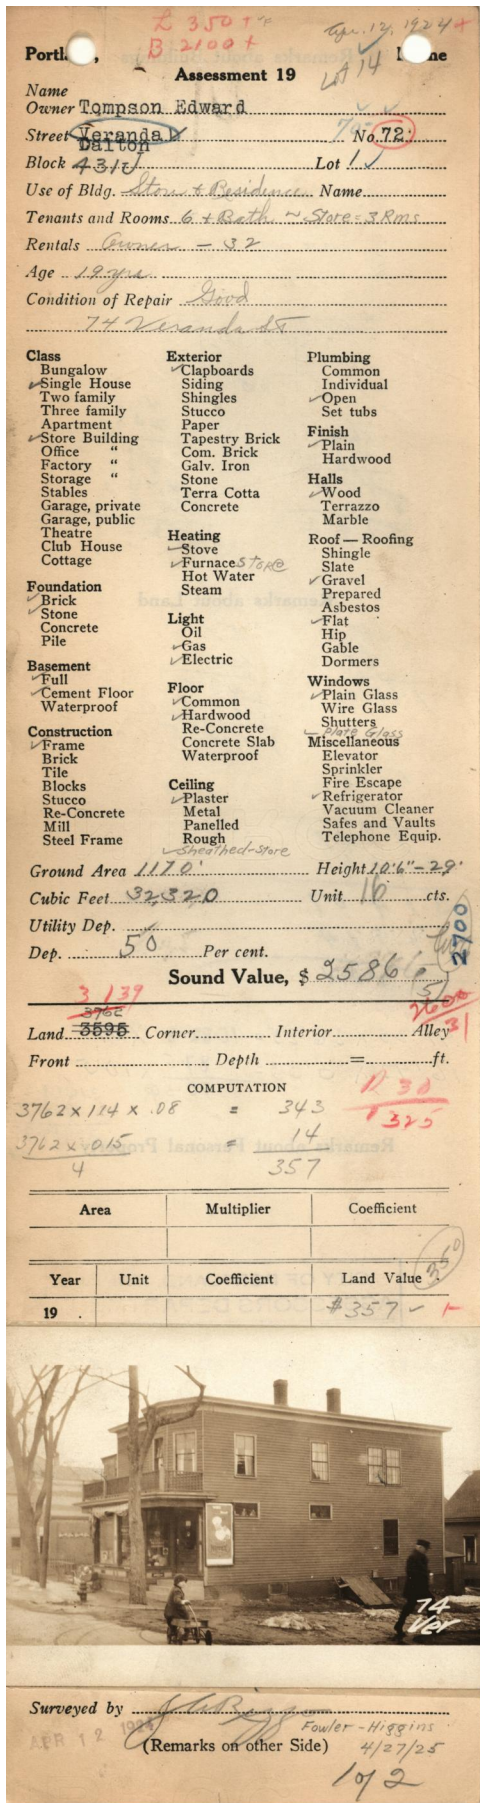 L 350 +
B 2100 +
Apr. 12, 1924 +
Lot 14
Portl , ne
Assessment 19
Name
Owner Tompson Edward
Street Veranda No. 72
Dalton
Block 431 Lot 1
Use of Bldg. Store + Residence Name
Tenants and Rooms 6 + Bath ~ Store = 3 Rms
Rentals Owner - 32
Age 19 yrs
Condition of Repair Good
74 Veranda St
Class
Bungalow
Single House
Two family
Three family
Apartment
Store Building
Office "
Factory "
Storage "
Stables
Garage, private
Garage, public
Theatre
Club House
Cottage
Foundation
Brick
Stone
Concrete
Pile
Basement
Full
Cement Floor
Waterproof
Construction
Frame
Brick
Tile
Blocks
Stucco
Re-Concrete
Mill
Steel Frame
Exterior
Clapboards
Siding
Shingles
Stucco
Paper
Tapestry Brick
Com. Brick
Galv. Iron
Stone
Terra Cotta
Concrete
Heating
Stove
Furnace STORE
Hot Water
Steam
Light
Oil
Gas
Electric
Floor
Common
Hardwood
Re-Concrete
Concrete Slab
Waterproof
Ceiling
Plaster
Metal
Panelled
Rough
Sheathed-store
Plumbing
Common
Individual
Open
Set tubs
Finish
Plain
Hardwood
Halls
Wood
Terrazzo
Marble
Roof — Roofing
Shingle
Slate
Gravel
Prepared
Asbestos
Flat
Hip
Gable
Dormers
Windows
Plain Glass
Wire Glass
Shutters
Plate Glass
Miscellaneous
Elevator
Sprinkler
Fire Escape
Refrigerator
Vacuum Cleaner
Safes and Vaults
Telephone Equip.
Ground Area 1170' Height 10'6"-29'
Cubic Feet 32,320 Unit 16 cts.
Utility Dep.
Dep. 50 Per cent.
2700
Sound Value, $ 2586
3139
3762
2600
31
Land 3595 Corner Interior Alley
Front Depth = ft.
COMPUTATION
3762 x 114 x .08 = 343
3762 x 015 = 14
4 357
30
325
Area Multiplier Coefficient
350
Year Unit Coefficient Land Value
19 $357
74
Ver
Surveyed by
APR 12 1924
Fowler-Higgins
(Remarks on other Side) 4/27/25
1 of 2